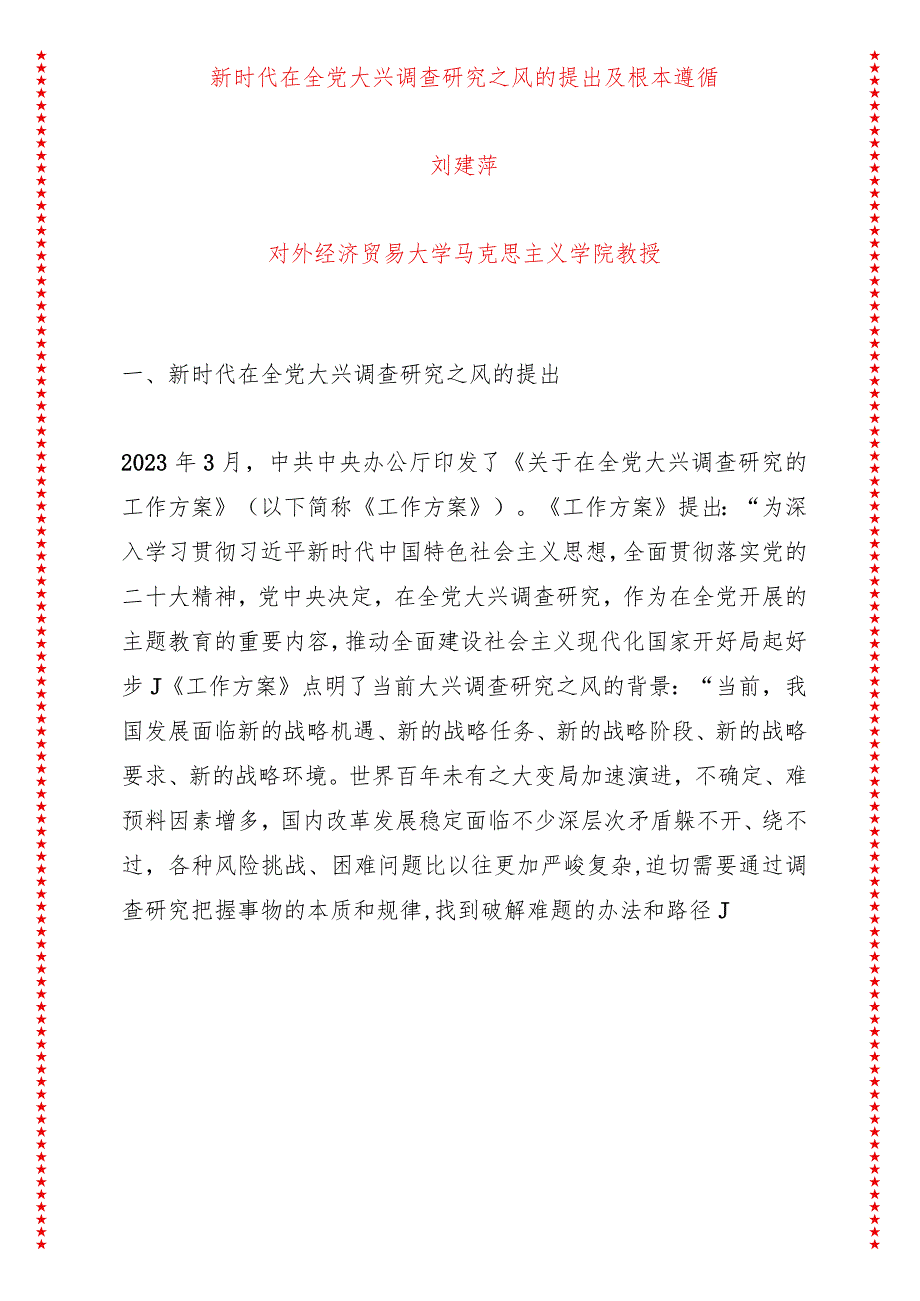 新时代在全党大兴调查研究之风的提出及根本遵循
刘建萍
对外经济贸易大学马克思主义学院教授
一、新时代在全党大兴调查研究之风的提出
2023 年 3 月，中共中央办公厅印发了《关于在全党大兴调查研究的
工作方案》（以下简称《工作方案》）。《工作方案》提出：“为深
入学习贯彻习近平新时代中国特色社会主义思想,全面贯彻落实党的
二十大精神，党中央决定，在全党大兴调查研究，作为在全党开展的
主题教育的重要内容，推动全面建设社会主义现代化国家开好局起好
步 J《工作方案》点明了当前大兴调查研究之风的背景：“当前，我
国发展面临新的战略机遇、新的战略任务、新的战略阶段、新的战略
要求、新的战略环境。世界百年未有之大变局加速演进，不确定、难
预料因素增多，国内改革发展稳定面临不少深层次矛盾躲不开、绕不
过，各种风险挑战、困难问题比以往更加严峻复杂,迫切需要通过调
查研究把握事物的本质和规律,找到破解难题的办法和路径 J